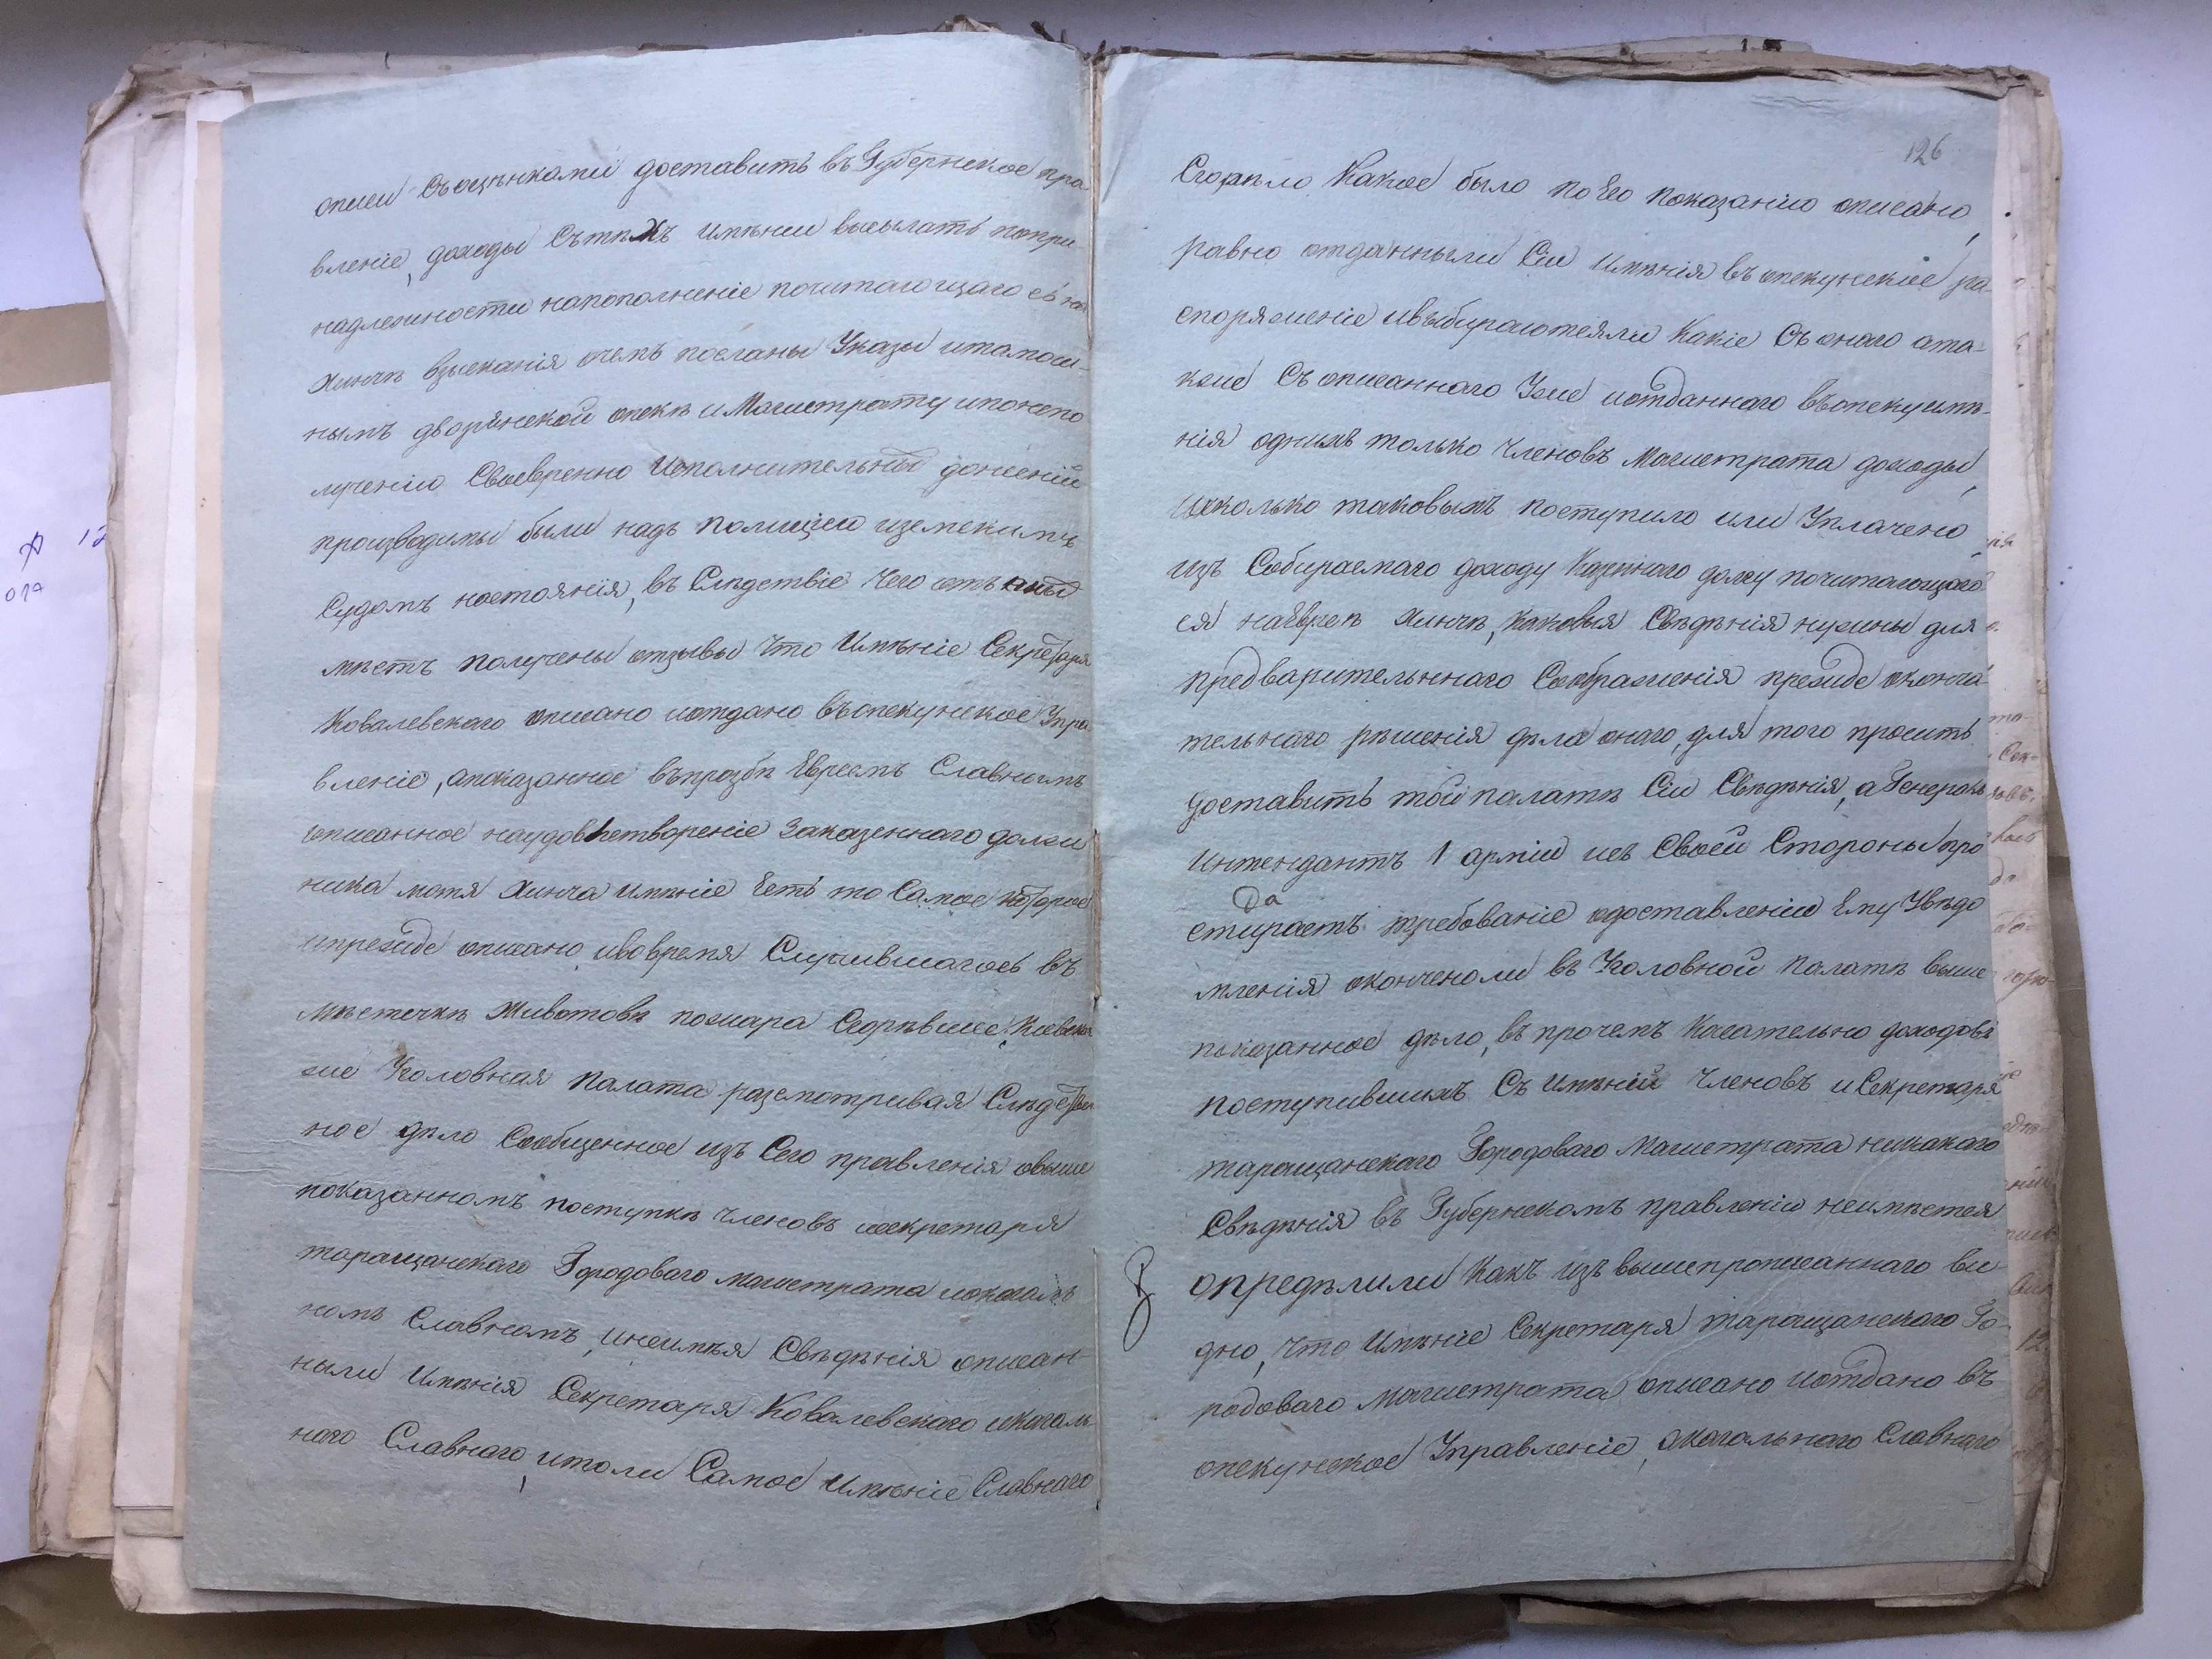 описи съоценками доставить въ Губернское пра
вленіе, доходы съ тѣхъ имѣніи высылать попри-
надлежности напополненіе почитающагось на
Хинчѣ взысканія очемъ посланы Указы итамош-
нымъ дворянской опекѣ и Магистрату ипонепо
лученію своевренно исполнительны донесеніи
производимы были надъ полиціею иземскимъ
Судомъ настоянія, въ слѣдствіе чего отъ оны
мѣстъ получены отзывы что имѣніе Секретаря
Ковалевскаго описано иотдано въопекунское Упра
вленіе, апоказанное въпрозбѣ Евреемъ Славнымъ
описанное наудовлетвореніе заказеннаго долж
ника мотя Хинча имѣніе есть то самое которое
ипрежде описано ивовремя случившагось въ
мѣстечкѣ Животовѣ пожара сгорѣвшее, Кіевска
же Уголовная Палата разсмотривая слѣдствен
ное дѣло сообщенное изъ сего правленія овыше
показанномъ поступкѣ членовъ исекретаря
таращанскаго Городоваго магистрата икагаль
номъ Славномъ, инеимѣя свѣдѣнія описан-
ныли имѣнія Секретаря Ковалевскаго икагаль
наго Славнаго, итоли самое имѣніе Славнаго
126
Сгорѣло какое было по его показанію описано,
равно отданныли сіи имѣнія въ опекунскіе ра-
споряженіе ивыбираютсяли какіе съ онаго ата-
кже съ описаннаго уже иотданнаго въопеку имѣ-
нія однихъ только членовъ магистрата доходы,
исколько таковыхъ поступило или уплачено
изъ собираемаго доходу казеннаго долгу почитающаго
ся наевреѣ Хинчѣ, каковыя свѣдѣнія нужны для
предварительннаго соображенія прежде оконча
тельнаго рѣшенія дѣла онаго, для того просить
доставить той палатѣ сіи свѣдѣнія, а Генералъ
Интендантъ 1 арміи исъ своей стороны про
да
стираетъ требованіе одоставленіи ему увѣдо
мленія оконченоли въ Уголовной Палатѣ выше
показанное дѣло, въ прочемъ касательно доходовъ
поступившихъ съ имѣній членовъ исекретаря
таращанскаго Городоваго магистрата никакаго
свѣдѣнія въ Губернскомъ правленіи неимѣется
опредѣлили какъ изъ вышепрописаннаго ви
дно, что имѣніе секретаря таращанскаго Го-
родоваго магистрата описано иотдано въ
опекунское Управленіе, акагальнаго Славнаго